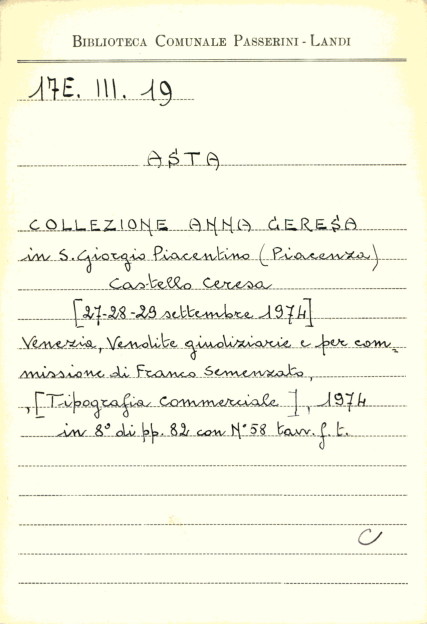 BIBLIOTECA COMUNALE PASSERINI - LANDI
17E. III. 19
ASTA
COLLEZIONE ANNA CERESA
in S. Giorgio Piacentino (Piacenza)
Castello Ceresa
[27-28-29 settembre 1974]
Venezia, Vendite giudiziarie e per com=
missione di Franco Semenzato,
, [Tipografia Commerciale], 1974
in 8° di pp. 82 con N°58 tavv. f. t.
C